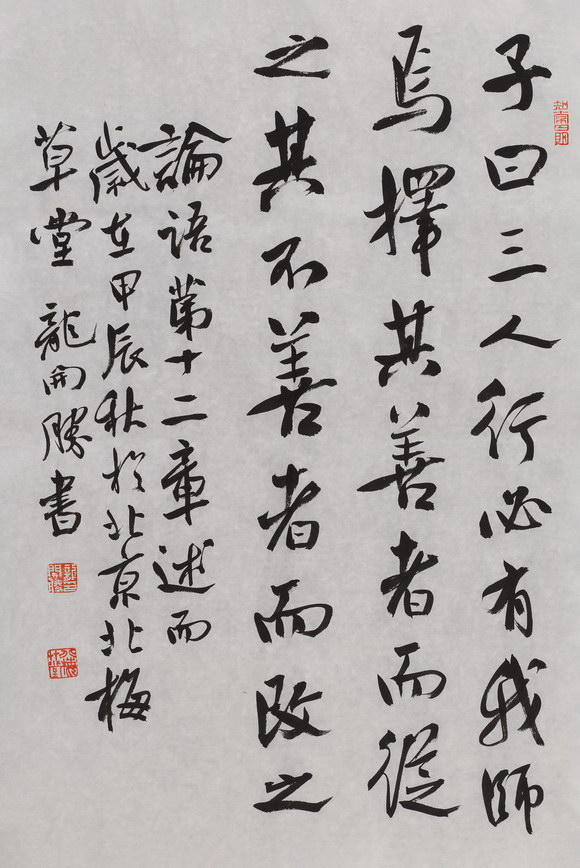 子曰三人行必有我師
焉擇其善者而從
之其不善者而改之
論語第十二章述而
歲在甲辰秋於北京北梅
草堂龍開勝書